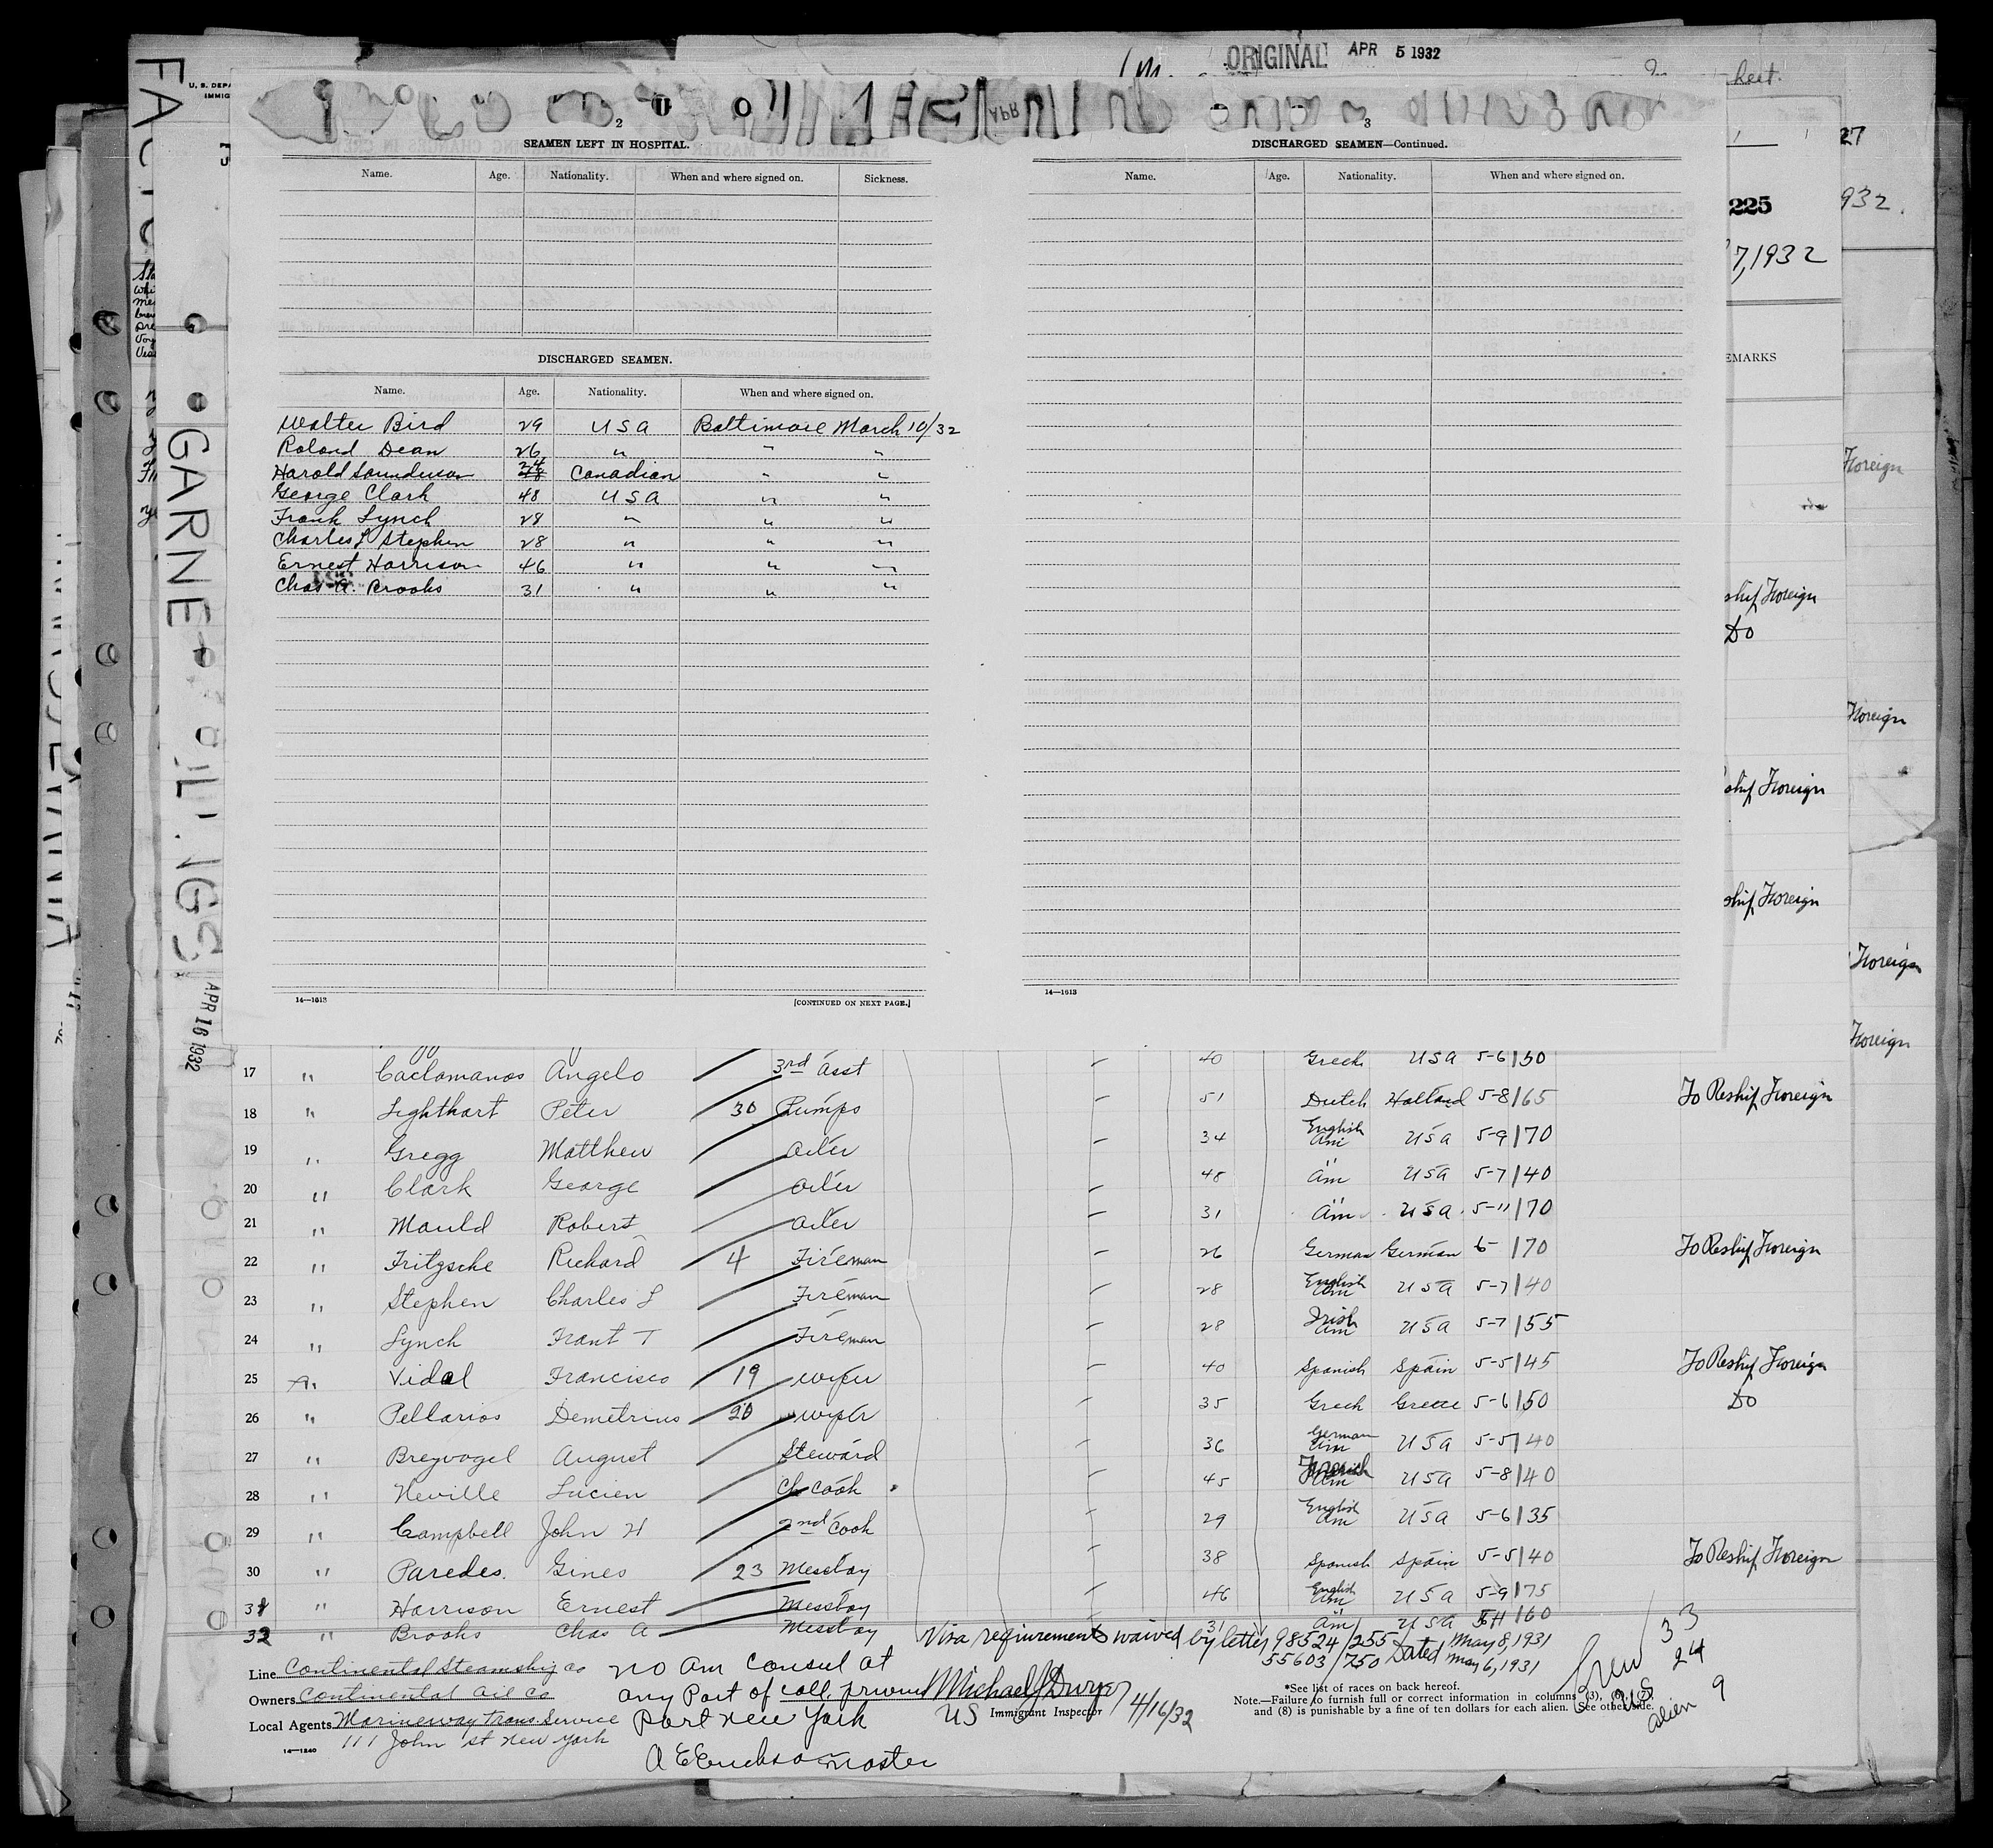 ORIGINAL APR 5 1932
heet.
U. S. DEPA
IMMIG
27
932.
225
7, 1932
EMARKS
2
SEAMEN LEFT IN HOSPITAL.
Name. Age. Nationality. When and where signed on. Sickness.
DISCHARGED SEAMEN.
Name. Age. Nationality. When and where signed on.
Walter Bird 29 USA Baltimore March 10/32
Roland Dean 26 " " "
Harold Saunderson 34 Canadian " "
George Clark 48 USA " "
Frank Lynch 28 " " "
Charles L Stephen 28 " " "
Ernest Harrison 46 " " "
Chas A. Brooks 31 " " "
14—1613 [CONTINUED ON NEXT PAGE.]
3
DISCHARGED SEAMEN—Continued.
Name. Age. Nationality. When and where signed on.
14—1613
Foreign
ship Foreign
Do
Foreign
ship Foreign
ship Foreign
Foreign
Foreign
GARNE
APR 16 1932
17 " Caclamanos Angelo 3rd asst 40 Greek USA 5-6 150
18 " Lighthart Peter 30 Pumps 51 Dutch Holland 5-8 165 To Reship Foreign
19 " Gregg Matthew oiler 34 English Am USA 5-9 170
20 " Clark George oiler 48 " Am USA 5-7 140
21 " Mauld Robert oiler 31 " Am USA 5-11 170
22 " Fritzsche Richard 4 Fireman 26 German German 6- 170 To Reship Foreign
23 " Stephen Charles L Fireman 28 English Am USA 5-7 140
24 " Lynch Frant T Fireman 28 Irish Am USA 5-7 155
25 " Vidal Francisco 19 wiper 40 Spanish Spain 5-5 145 To Reship Foreign
26 " Pellarios Demetrius 20 wiper 35 Greek Greece 5-6 150 Do
27 " Breyvogel August Steward 36 German Am USA 5-5 140
28 " Neville Lucien Ch Cook 45 Am USA 5-8 140
29 " Campbell John H 2nd Cook 29 English Am USA 5-6 135
30 " Paredes. Gines 23 Messboy 38 Spanish Spain 5-5 140 To Reship Foreign
31 " Harrison Ernest Messboy 46 English Am USA 5-9 175
32 " Brooks Chas A Messboy 31 " Am USA 5-11 160
Visa requirements waived by letter 98524/255 Dated May 8, 1931
55603/750 May 6, 1931
Line Continental Steamship Co
Owners Continental Oil Co
Local Agents Marineway Trans. Service
111 John St New York
14—1240
no Am Consul at
any Port of call. prwious
Port New York
A E Erickson master
Michael J Dwyer 4/16/32
US Immigrant Inspector
*See list of races on back hereof.
Note.—Failure to furnish full or correct information in columns (3), (5),
and (8) is punishable by a fine of ten dollars for each alien. See other side.
Crew 33
US 24
alien 9